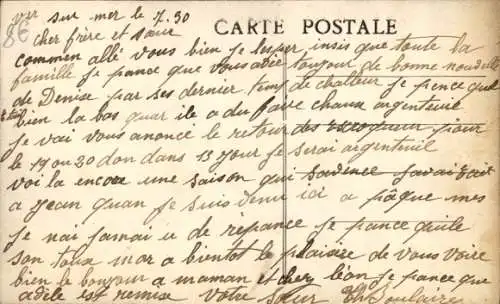 86
sur mer le 7.30
CARTE POSTALE
cher frère et sœur
commen allé vous bien je lesper insis que toute la
famille je pance que vous avez toujour de bonne nouvelle
de Denise par ses dernier temp de challeur je pence quel
bien la bas quar il a du faire chaux argenteuil
je vai vous anoncé le retour des pour
le 19 ou 20 don dans 15 jour je serai argenteuil
voi la encore une saison qui savait
a jean quan je suis denu ici a pâque mes
je nai jamai u de réponce je pance quile
son toux mor a bientot le plaisire de vous voire
bien le bonjour a maman et cher léon je pance que
adèle est remise votre Sœur